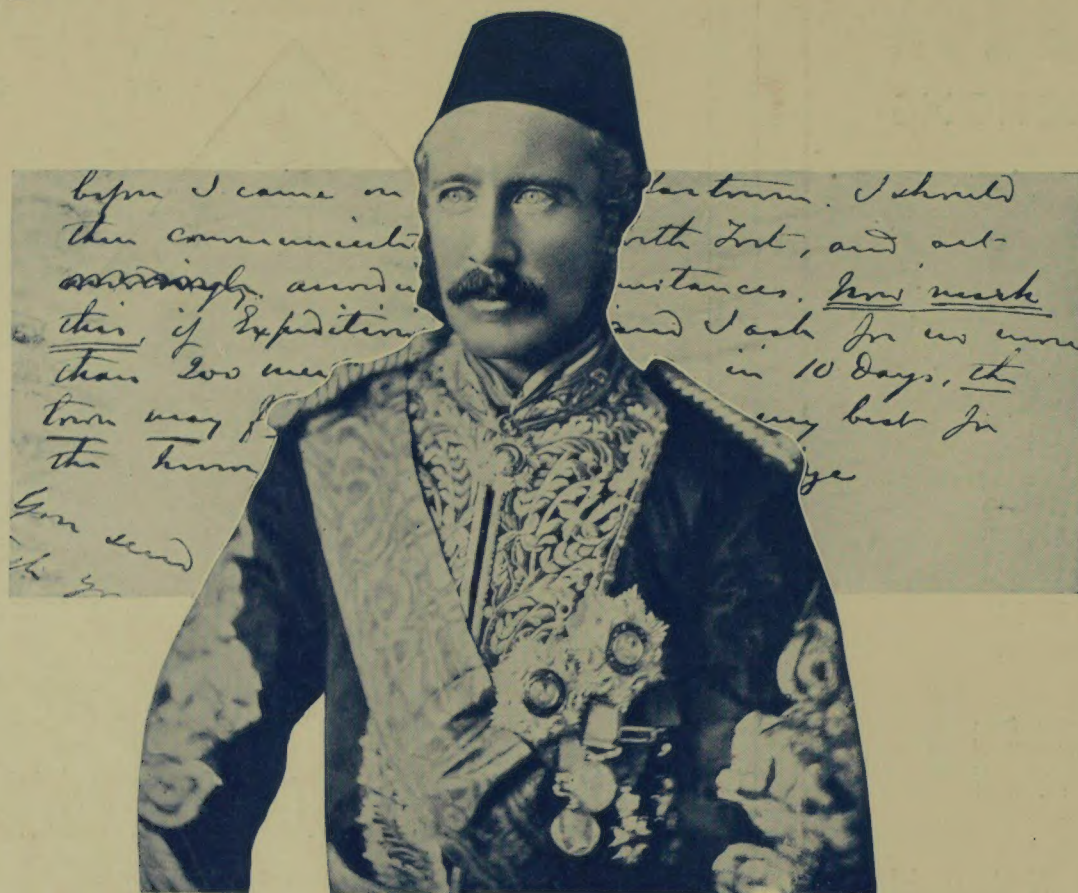 before I came on hartoum. I should
then communicat orth Fort, and act
accord mstances. Now mark
this, if Expedition and I ask for no more
than 200 men in 10 days, the
town may f my best for
the hono ye
You send